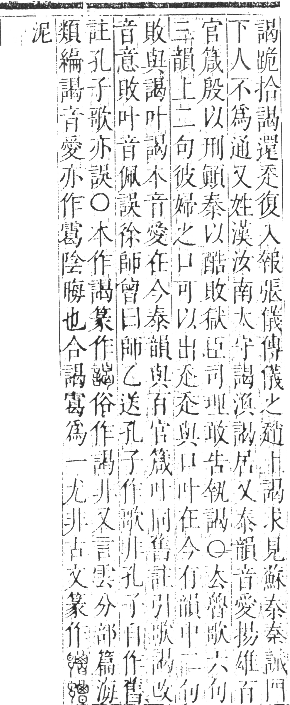 謁跪拾謁還走復入報張儀傳儀之趙上謁求見蘇秦秦誡門
下人不爲通又姓漢汝南太守謁渙謁居又泰韻音愛揚雄百
官箴殷以刑顚秦以酷敗獄臣司理敢告執謁○去魯歌六句
三韻上二句彼婦之口可以出走走與口叶在今有韻中二句
敗與謁叶謁本音愛在今泰韻與百官箴叶同舊註引歌謁改
音意敗叶音佩誤徐師曾曰師乙送孔子作歌非孔子自作舊
註孔子歌亦誤○本作謁篆作俗作謁非又言雲分部篇海
類編謁音愛亦作靄陰晦也合謁靄爲一尤非古文篆作
泥